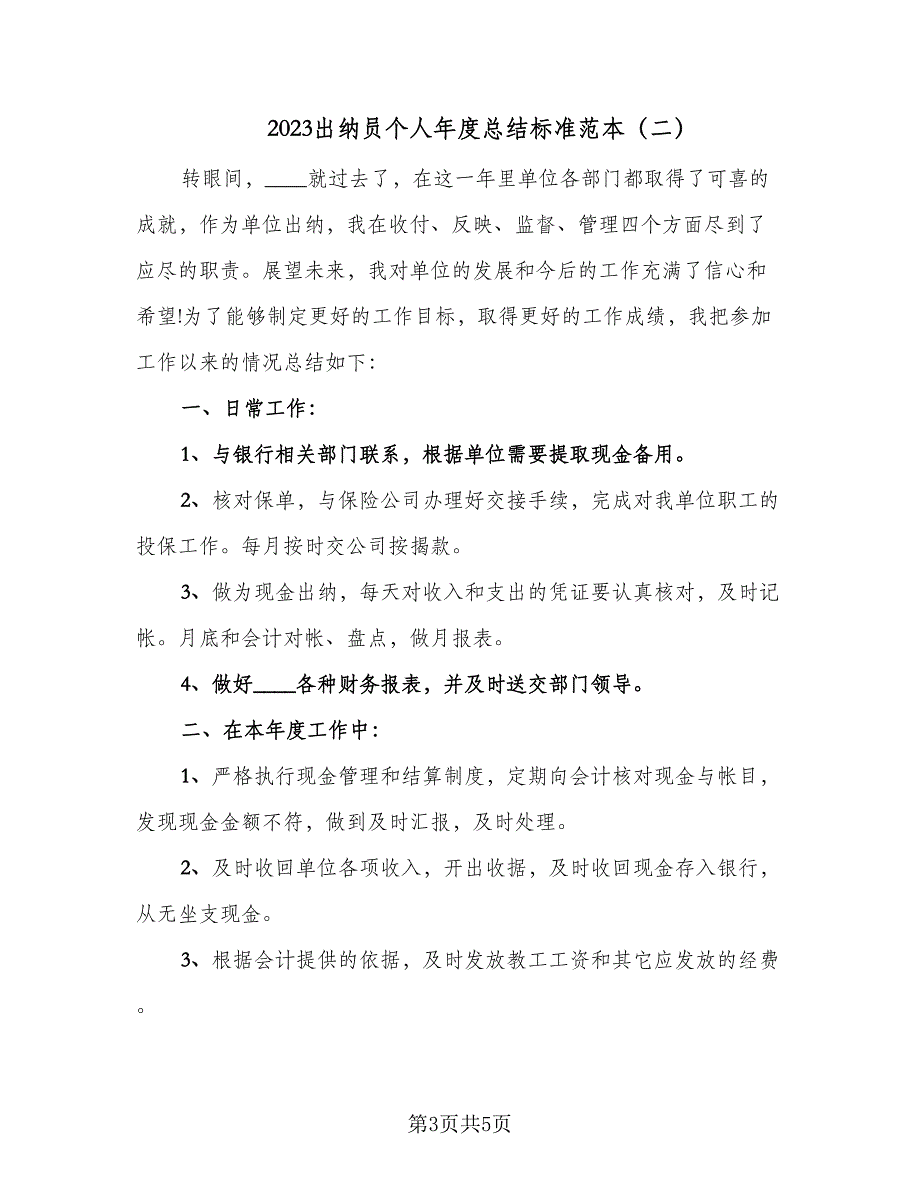 2023出纳员个人年度总结标准范本（二）
转眼间，____就过去了，在这一年里单位各部门都取得了可喜的
成就，作为单位出纳，我在收付、反映、监督、管理四个方面尽到了
应尽的职责。展望未来，我对单位的发展和今后的工作充满了信心和
希望!为了能够制定更好的工作目标，取得更好的工作成绩，我把参加
工作以来的情况总结如下：
一、日常工作：
1、与银行相关部门联系，根据单位需要提取现金备用。
2、核对保单，与保险公司办理好交接手续，完成对我单位职工的
投保工作。每月按时交公司按揭款。
3、做为现金出纳，每天对收入和支出的凭证要认真核对，及时记
帐。月底和会计对帐、盘点，做月报表。
4、做好____各种财务报表，并及时送交部门领导。
二、在本年度工作中：
1、严格执行现金管理和结算制度，定期向会计核对现金与帐目，
发现现金金额不符，做到及时汇报，及时处理。
2、及时收回单位各项收入，开出收据，及时收回现金存入银行，
从无坐支现金。
3、根据会计提供的依据，及时发放教工工资和其它应发放的经费
。
第3页共5页